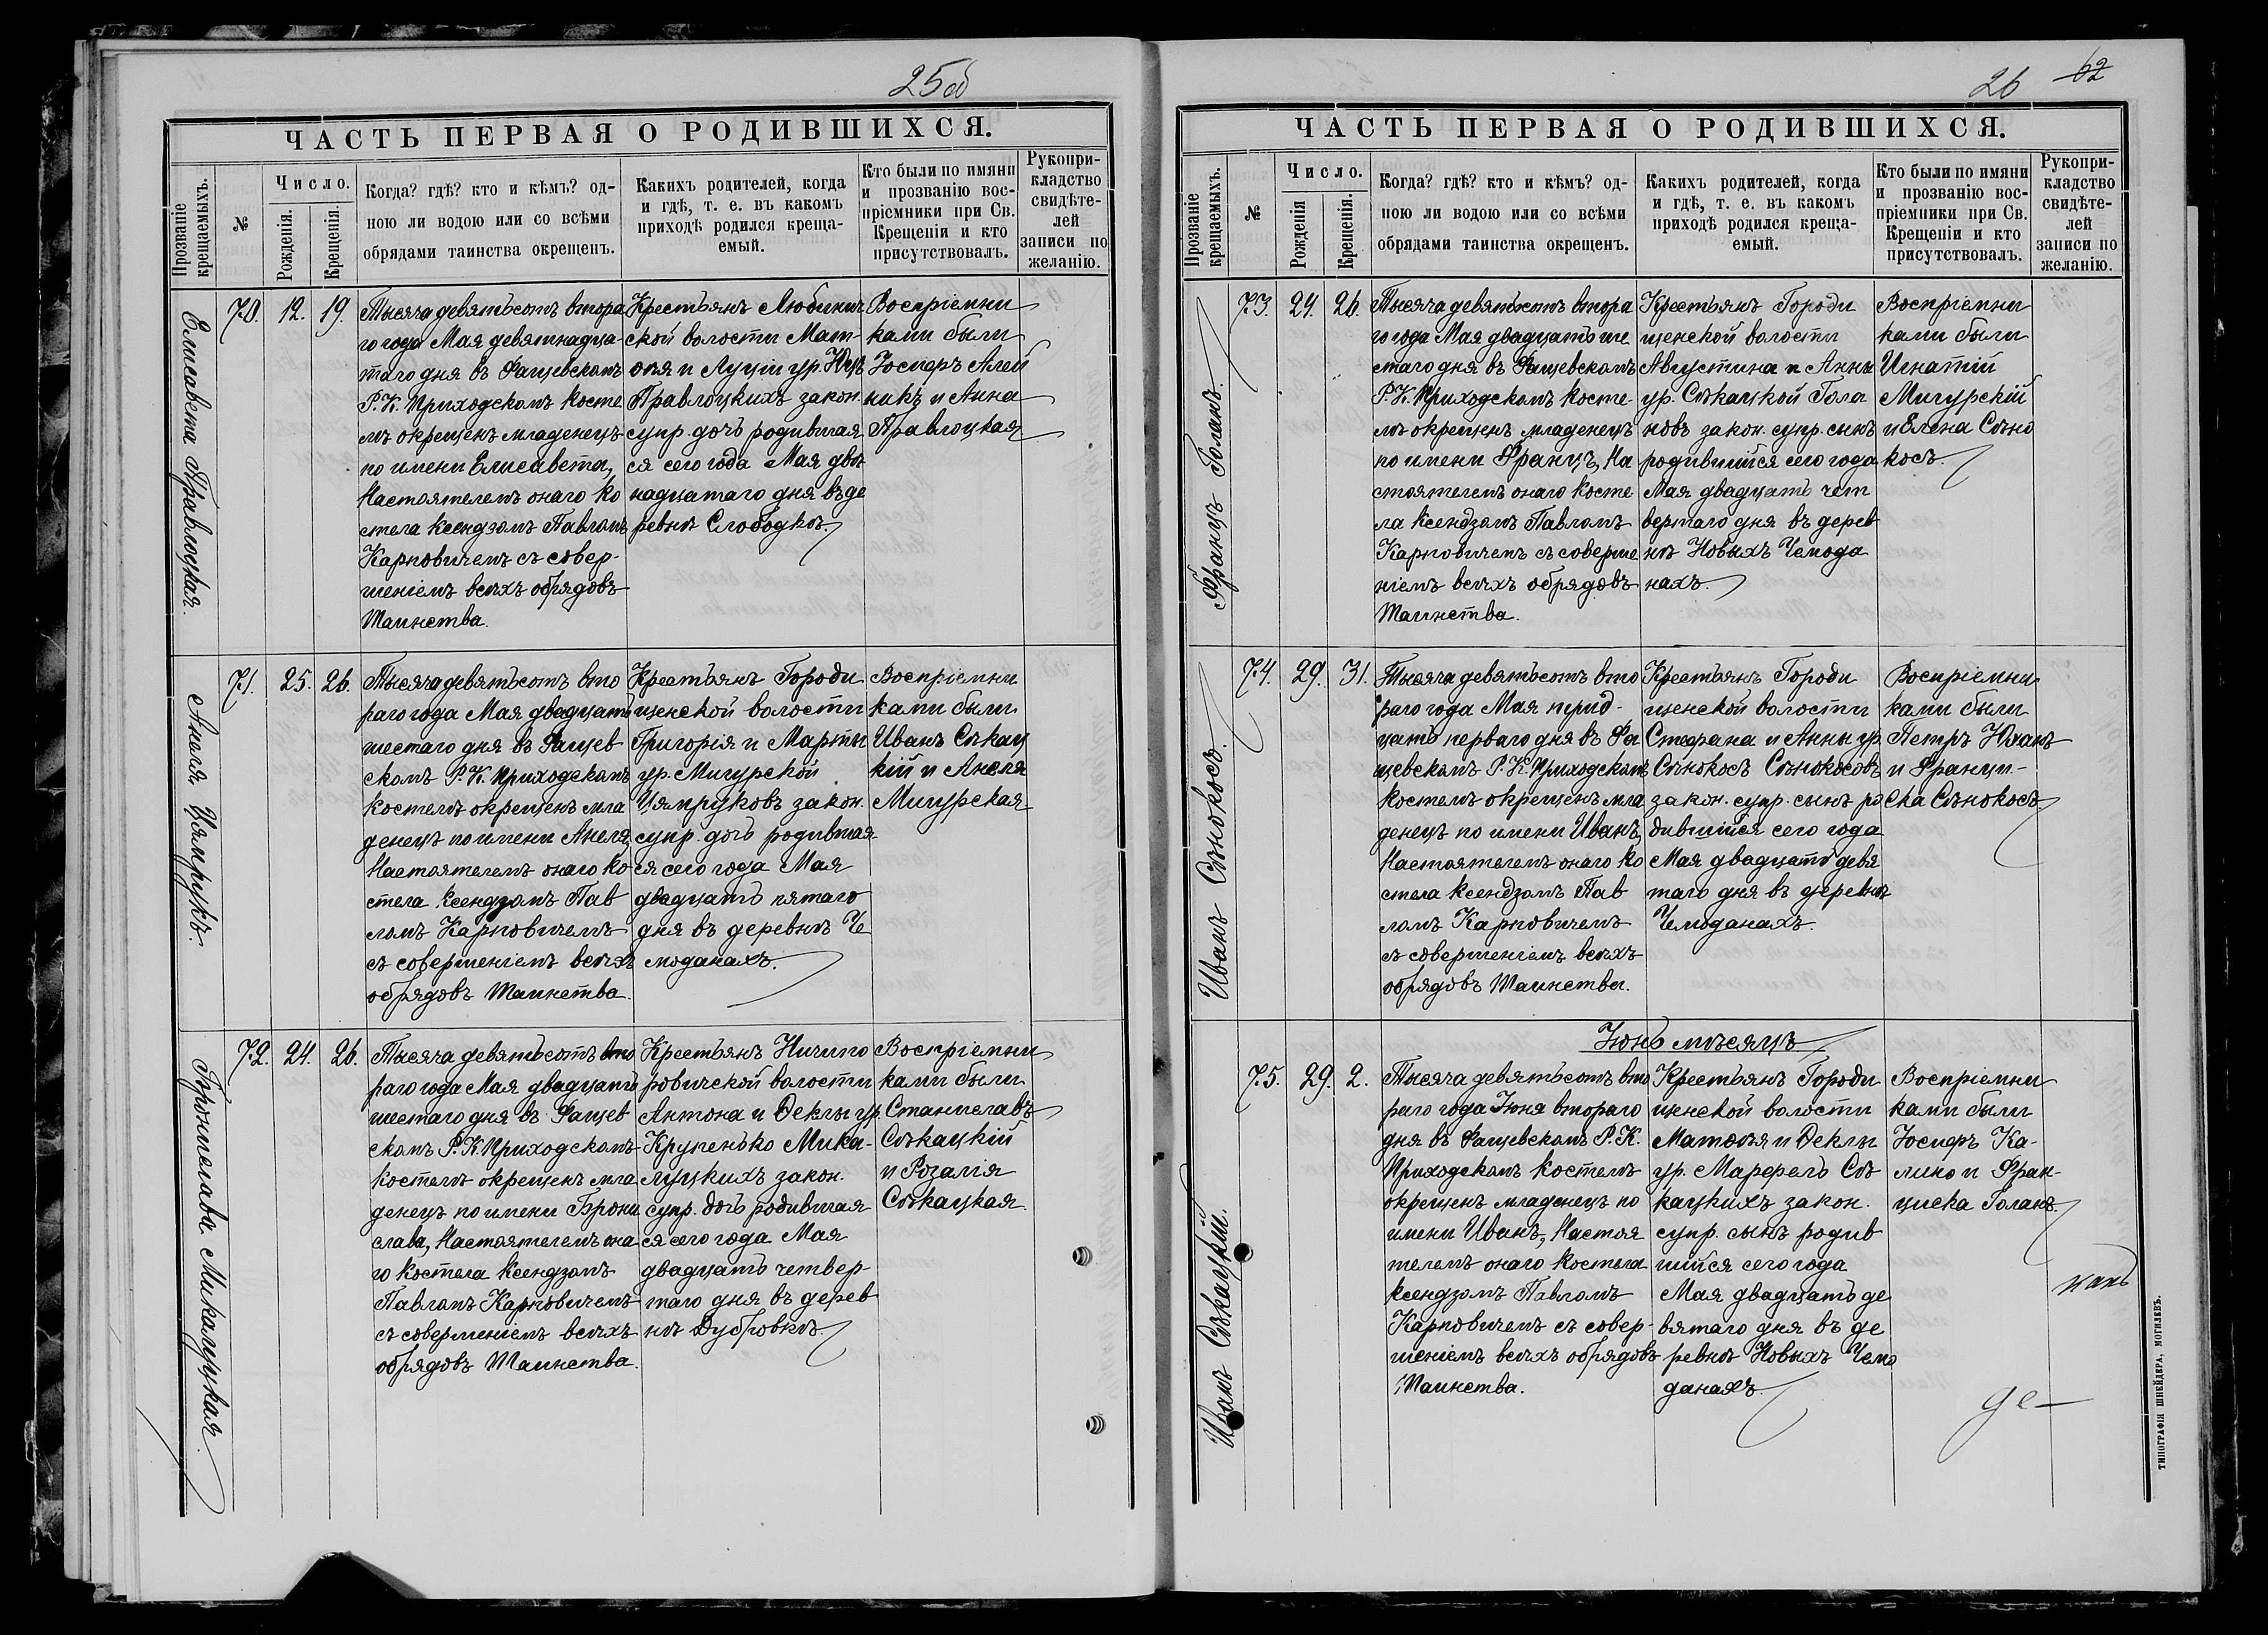 25об
ЧАСТЬ ПЕРВАЯ О РОДИВШИХСЯ.
Прозваніе крещаемыхъ.
№
Число.
Рожденія.
Крещенія.
Когда? гдѣ? кто и кѣмъ? од-
ною ли водою или со всѣми
обрядами таинства окрещенъ.
Какихъ родителей, когда
и гдѣ, т. е. въ какомъ
приходѣ родился креща-
емый.
Кто были по имяни
и прозванію вос-
пріемники при Св.
Крещеніи и кто
присутствовалъ.
Рукопри-
кладство
свидѣте-
лей
записи по
желанію.
Елисавета Правлоцкая.
70.
12.
19.
Тысяча девятьсотъ втора
го года Мая девятнадца
таго дня въ Фащевскомъ
Р. К. Приходскомъ косте
лѣ окрещенъ младенецъ
по имени Елисавета,
Настоятелемъ онаго ко
стела ксендзомъ Павломъ
Карповичемъ съ совер-
шеніемъ всѣхъ обрядовъ
Таинства.
Крестьянъ Любинич
ской волости Мат-
ѳея и Луціи ур.
Правлоцкихъ закон.
супр. дочь родившая
ся сего года Мая двѣ
надцатаго дня въ де
ревнѣ Слободкѣ.
Воспріемни
ками были
Іосифъ Алей
никъ и Анна
Правлоцкая
Анеля Цямпрукъ.
71.
25.
26.
Тысяча девятьсотъ вто
раго года Мая двадцать
шестаго дня въ Фащев
скомъ Р. К. Приходскомъ
костелѣ окрещенъ мла
денецъ по имени Анеля,
Настоятелемъ онаго ко
стела ксендзомъ Пав
ломъ Карповичемъ
съ совершеніемъ всѣхъ
обрядовъ Таинства.
Крестьянъ Городи
щенской волости
Григорія и Марты
ур. Мигурской
Цямпруковъ закон.
супр. дочь родившая
ся сего года Мая
двадцать пятаго
дня въ деревнѣ Че
моданахъ.
Воспріемни
ками были
Иванъ Сѣкац
кій и Анеля
Мигурская
Бронислава Микалуцкая.
72.
24.
26.
Тысяча девятьсотъ вто
раго года Мая двадцать
шестаго дня въ Фащев
скомъ Р. К. Приходскомъ
костелѣ окрещенъ мла
денецъ по имени Брони
слава, Настоятелемъ она
го костела ксендзомъ
Павломъ Карповичемъ
съ совершеніемъ всѣхъ
обрядовъ Таинства.
Крестьянъ Ничипо
ровичской волости
Антона и Ѳеклы ур.
Крупенько Мика-
луцкихъ закон.
супр. дочь родившая
ся сего года Мая
двадцать четвер-
таго дня въ дерев
нѣ Дубровкѣ.
Воспріемни
ками были
Станиславъ
Сѣкацкій
и Розалія
Сѣкацкая.
26 62
ЧАСТЬ ПЕРВАЯ О РОДИВШИХСЯ.
Прозваніе крещаемыхъ.
№
Число.
Рожденія
Крещенія.
Когда? гдѣ? кто и кѣмъ? од-
ною ли водою или со всѣми
обрядами таинства окрещенъ.
Какихъ родителей, когда
и гдѣ, т. е. въ какомъ
приходѣ родился креща-
емый.
Кто были по имяни
и прозванію вос-
пріемники при Св.
Крещеніи и кто
присутствовалъ.
Рукопри-
кладство
свидѣте-
лей
записи по
желанію.
Францъ Голанъ.
73.
24.
26.
Тысяча девятьсотъ втора
го года Мая двадцать ше
стаго дня въ Фащевскомъ
Р. К. Приходскомъ косте-
лѣ окрещенъ младенецъ
по имени Францъ, На
стоятелемъ онаго косте
ла ксендзомъ Павломъ
Карповичемъ съ соверше
ніемъ всѣхъ обрядовъ
Таинства.
Крестьянъ Городи
щенской волости
Августина и Анны
ур. Сѣкацкой Гола
новъ закон. супр. сынъ
родившійся сего года
Мая двадцать чет
вертаго дня въ дерев
нѣ Новыхъ Чемода
нахъ.
Воспріемни
ками были
Игнатій
Мигурскій
и Елена Сѣно
косъ.
Иванъ Сѣнокосъ.
74.
29.
31.
Тысяча девятьсотъ вто
раго года Мая трид-
цать перваго дня въ Фа
щевскомъ Р. К. Приходскомъ
костелѣ окрещенъ мла
денецъ по имени Иванъ,
Настоятелемъ онаго ко
стела ксендзомъ Пав
ломъ Карповичемъ
съ совершеніемъ всѣхъ
обрядовъ Таинства.
Крестьянъ Городи
щенской волости
Стефана и Анны ур.
Сѣнокосъ Сѣнокосовъ
закон. супр. сынъ ро
дившійся сего года
Мая двадцать девя
таго дня въ деревнѣ
Чемоданахъ.
Воспріемни
ками были
Петръ Юханъ
и Францы-
ска Сѣнокосъ.
Іюнь мѣсяцъ
Иванъ Сѣкацкій.
75.
29.
2.
Тысяча девятьсотъ вто
раго года Іюня втораго
дня въ Фащевскомъ Р. К.
Приходскомъ костелѣ
окрещенъ младенецъ по
имени Иванъ, Настоя
телемъ онаго костела
ксендзомъ Павломъ
Карповичемъ съ совер-
шеніемъ всѣхъ обрядовъ
Таинства.
Крестьянъ Городи
щенской волости
Матѳея и Ѳеклы
ур. Марфель Сѣ
кацкихъ закон.
супр. сынъ родив
шійся сего года
Мая двадцать де
вятаго дня въ де
ревнѣ Новыхъ Чемо
данахъ.
Воспріемни
ками были
Іосифъ Ка-
лино и Фран-
циска Голанъ.
де—
ТИПОГРАФІЯ ШНЕЙДЕРА, МОГИЛЕВЪ.